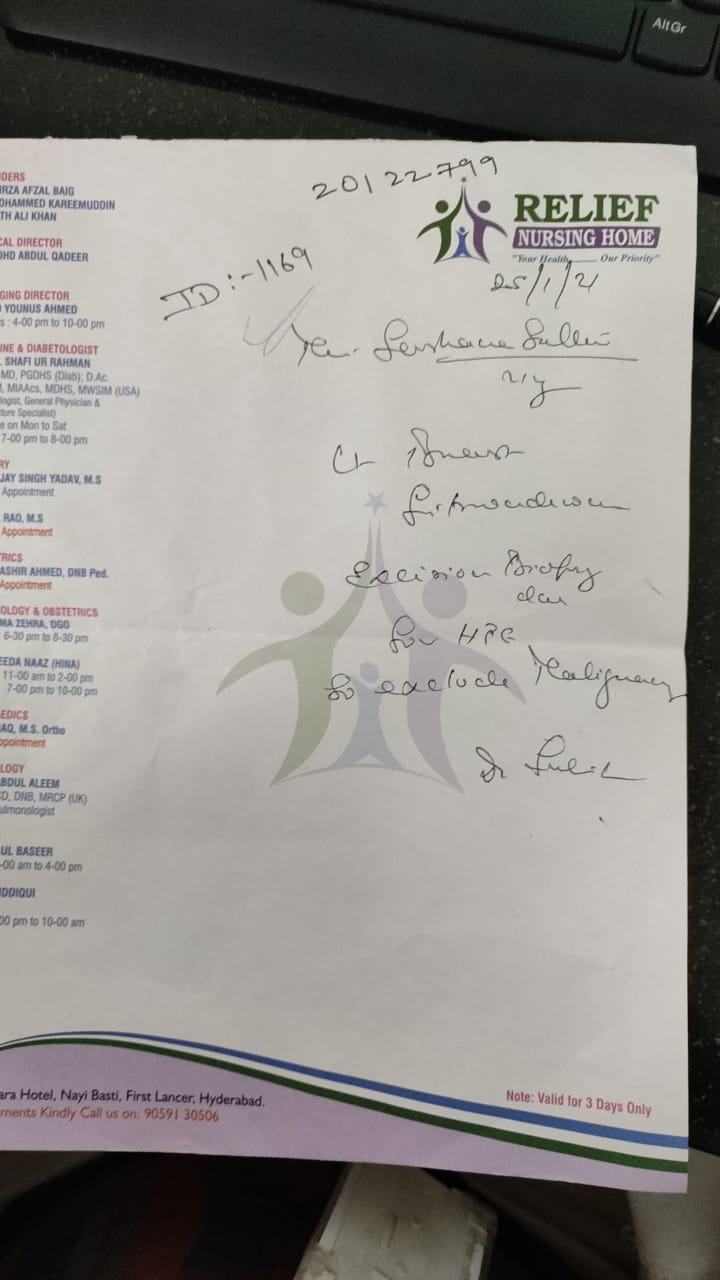 AltGr
20122799
RELIEF
NURSING HOME
"Your Health.......... Our Priority"
ID:-1169
25/1/21
DERS
IRZA AFZAL BAIG
OHAMMED KAREEMUDDIN
TH ALI KHAN
CAL DIRECTOR
OHD ABDUL QADEER
GING DIRECTOR
YOUNUS AHMED
s : 4-00 pm to 10-00 pm
INE & DIABETOLOGIST
SHAFI UR RAHMAN
MD, PGDHS (Diab); D.Ac.
, MIAAcs, MDHS, MWSIM (USA)
logist, General Physician &
ture Specialist)
e on Mon to Sat
7-00 pm to 8-00 pm
RY
JAY SINGH YADAV, M.S
Appointment
RAO, M.S
Appointment
TRICS
ASHIR AHMED, DNB Ped.
Appointment
OLOGY & OBSTETRICS
MA ZEHRA, DGO
6-30 pm to 8-30 pm
EEDA NAAZ (HINA)
11-00 am to 2-00 pm
7-00 pm to 10-00 pm
EDICS
AQ, M.S. Ortho
ppointment
LOGY
ABDUL ALEEM
D, DNB, MRCP (UK)
ulmonologist
UL BASEER
-00 am to 4-00 pm
IDDIQUI
00 pm to 10-00 am
Breast
Fibroadenoma
Excision Biopsy
for HPE
to exclude Malignancy
Dr
ara Hotel, Nayi Basti, First Lancer, Hyderabad.
ments Kindly Call us on: 90591 30506
Note: Valid for 3 Days Only